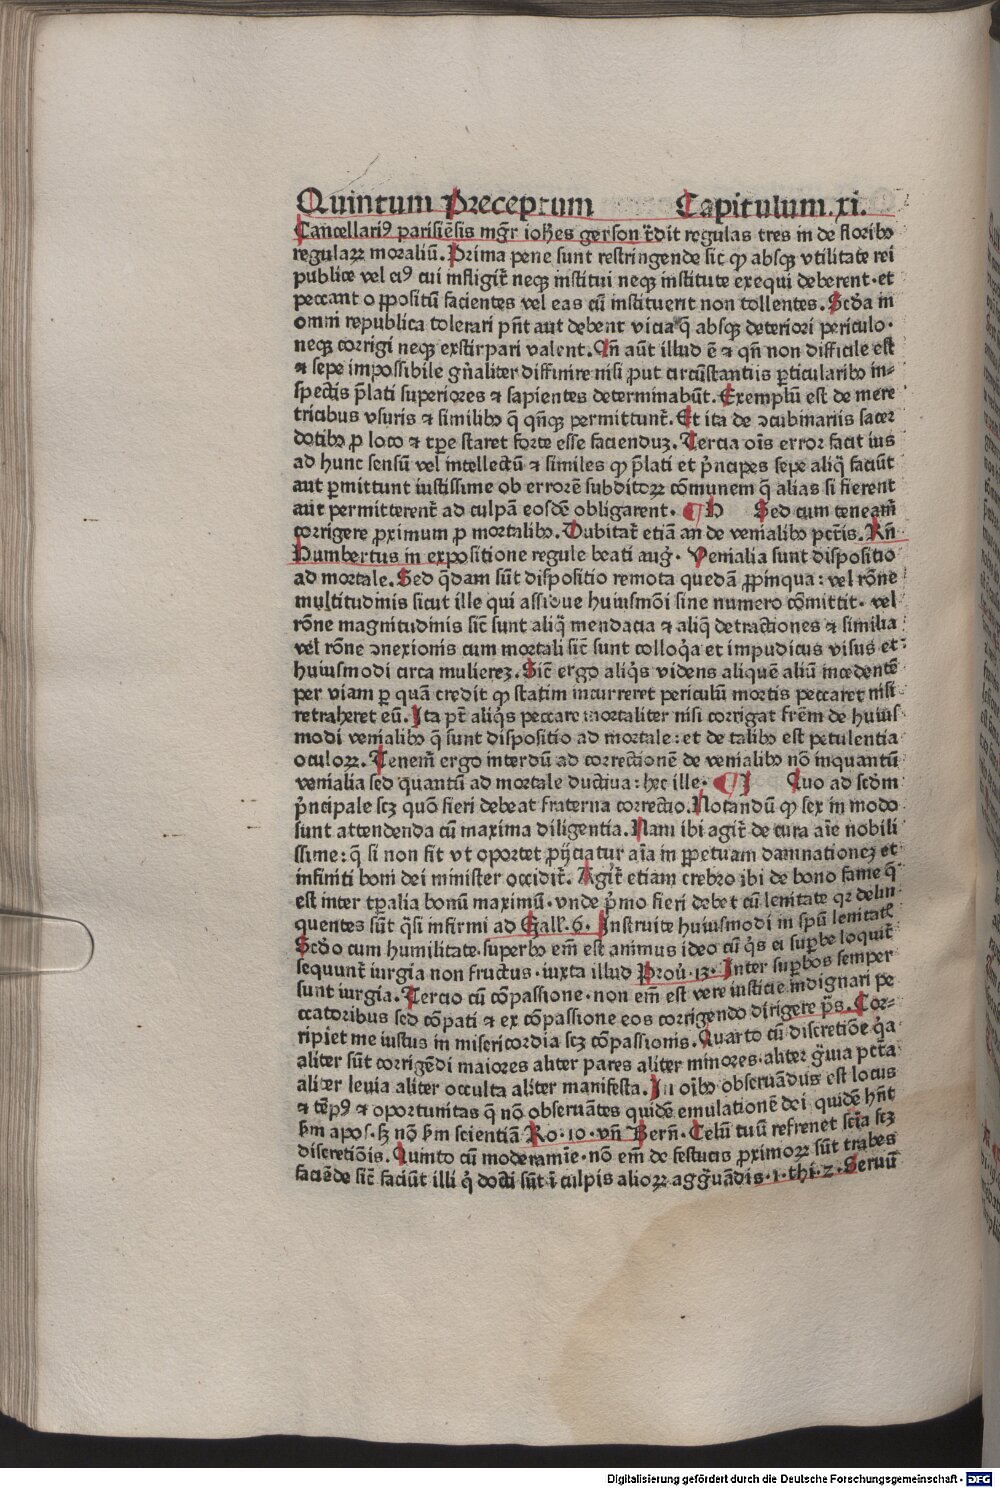 Quintum Preceptum Capitulum.xi.
Cancellariꝰ parisiēsis mgr̄ ioh̄es gerson t̄dit regulas tres in de floribꝫ
regulaꝝ moraliū. Prima pene sunt restringende sic ꝙ absqꝫ vtilitate rei
publice vel eiꝰ cui infligit᷑ neqꝫ institui neqꝫ institute exequi deberent. et
peccant ꝯ ꝓpositū facientes vel eas cū instituerit non tollentes. Scd̄a in
omni republica tolerari pn̄t aut debent vicia q̄ absqꝫ deteriori periculo.
neqꝫ corrigi neqꝫ exstirpari valent. Qn̄ aūt illud ē ⁊ qn̄ non difficile est
⁊ sepe impossibile gn̄aliter diffinire nisi ꝓut circūstantiis ꝑticularibꝫ in-
spectis p̄lati superiores ⁊ sapientes determinabūt. Exemplū est de mere
tricibus vsuris ⁊ similibꝫ q̄ qn̄qꝫ permittunt᷑. Et ita de ꝯcubinariis sacer
dotibꝫ ꝓ loco ⁊ tꝑe staret forte esse faciendūꝫ. Tercia oīs error facit ius
ad hunc sensū vel intellectū ⁊ similes ꝙ p̄lati et pͥncipes sepe aliq̄ faciūt
aut ꝑmittunt iustissime ob errorē subditoꝝ cōmunem q̄ alias si fierent
aūt permitterent᷑ ad culpā eosdē obligarent. ¶ H Sed cum teneam᷑
corrigere ꝓximum ꝓ mortalibꝫ. Dubitat᷑ etiā an de venialibꝫ pct̄is. Rn̄
Humbertus in expositione regule beati auḡ. Venialia sunt dispositio
ad mortale. Sed q̄dam sūt dispositio remota quedā ꝓpinqua: vel rōne
multitudinis sicut ille qui assidue huiusmōi sine numero cōmittit. vel
rōne magnitudinis sic̄ sunt aliq̄ mendacia ⁊ aliq̄ detractiones ⁊ similia
vel rōne ꝯnexionis cum mortali sic̄ sunt colloq̄a et impudicus visus et
huiusmodi circa mulierēꝫ. Sic̄ ergo aliqͥs videns aliquē aliū incedentē
per viam ꝑ quā credit ꝙ statim incurreret periculū mortis peccaret nisi
retraheret eū. Ita pt̄ aliqͥs peccare mortaliter nisi corrigat fr̄em de huius
modi venialibꝫ q̄ sunt dispositio ad mortale: et de talibꝫ est petulentia
oculoꝝ. Tenem᷑ ergo interdū ad correctionē de venialibꝫ nō inquantū
venialia sed quantū ad mortale ductiua: hec ille. ¶ I Quo ad scd̄m
pͥncipale scꝫ quō fieri debeat fraterna correctio. Notandū ꝙ sex in modo
sunt attendenda cū maxima diligentia. Nam ibi agit᷑ de cura aīe nobili
ssime: q̄ si non fit vt oportet ꝓijciatur aīa in ꝑpetuam damnationeꝫ et
infiniti boni dei minister occidit᷑. Agit᷑ etiam crebro ibi de bono fame q̄
est inter tꝑalia bonū maximū. vnde pͥmo fieri debet cū lenitate qꝛ delin
quentes sūt q̄si infirmi ad Gall̄. 6. Instruite huiusmodi in spū lenitatꝭ
Scd̄o cum humilitate. superbo em̄ est animus ideo cū qͥs ei suꝑbe loquit᷑
sequunt᷑ iurgia non fructus. iuxta illud Prou̇. 13. Inter suꝑbos semper
sunt iurgia. Tercio cū cōpassione. non em̄ est vere iusticie indignari pe
ccatoribus sed cōpati ⁊ ex cōpassione eos corrigendo dirigere ps̄. Cor-
ripiet me iustus in misericordia scꝫ cōpassionis. Quarto cū discretiōe qͣa
aliter sūt corrigēdi maiores aliter pares aliter minores. aliter gͣuia pct̄a
aliter leuia aliter occulta aliter manifesta. In oībꝫ obseruādus est locus
⁊ tēpꝰ ⁊ oportunitas q̄ nō obseruātes quidē emulationē dei quidē hn̄t
ẜm apos. sꝫ nō ẜm scientiā Ro. 10. vn̄ Bern̄. Celū tuū refrenet scīa scꝫ
discretiōis. Quinto cū moderamīe. nō em̄ de festucis ꝓximoꝝ sūt trabes
faciēde sic̄ faciūt illi qͥ docti sūt ī culpis alioꝝ aggͣuādis. 1. thi. 2. Seruū